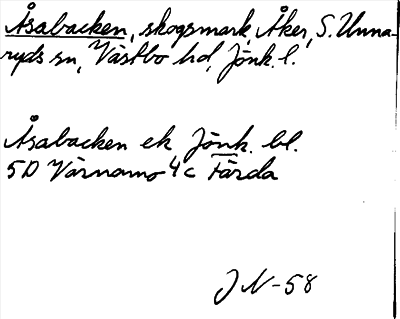 Åsabacken, skogsmark, Åker, S. Unna-
ryds sn, Västbo hd, Jönk. l.
Åsabacken ek Jönk. bl.
5D Värnamo 4c Färda
J N-58